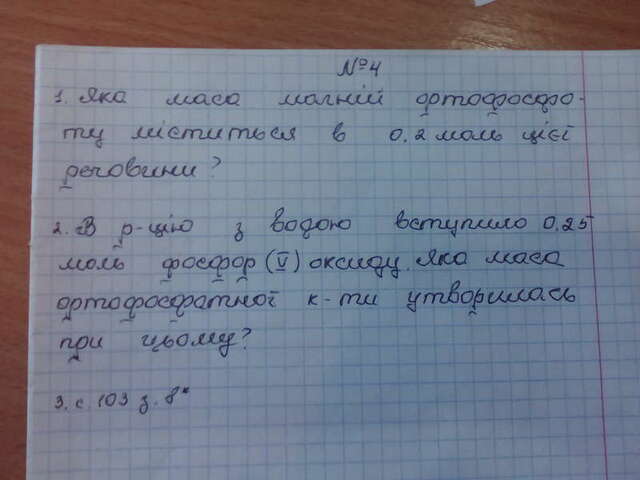 №4
1. Яка маса магній ортофосфа-
ту міститься в 0.2 моль цієї
речовини?
2. В р-цію з водою вступило 0.25
моль фосфор (V) оксиду. Яка маса
ортофосфатної к-ти утворилась
при цьому?
3. с. 103 з. 8*